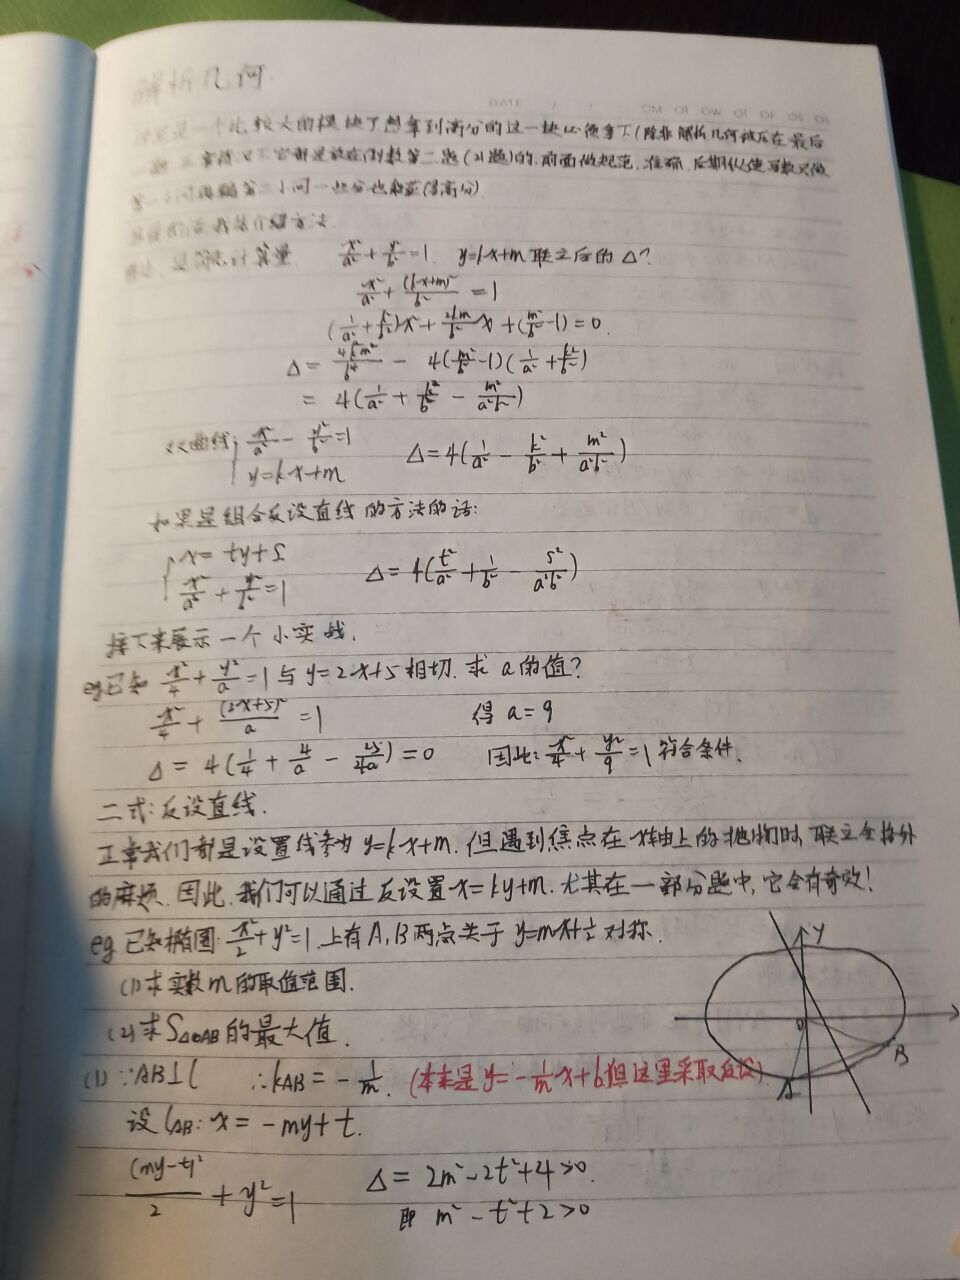 解析几何
DATE / / MO TU WE TH FR SA SU
这里是一个比较大的模块了想拿到高分的这一块必须拿下(除非解析几何被压在最后
一题 正常情况下它都是放在倒数第二题(21题)的.前面做规范,准确.后期纵使导数只做
第一小问再蹭第二小问一些分也能拿高分)
我装介绍方法
是 计算量. x²/a²+y²/b²=1. y=kx+m联立后的Δ?
x²/a²+(kx+m)²/b²=1
(1/a²+k²/b²)x²+2km/b² x+(m²/b²-1)=0.
Δ=4k²m²/b⁴ - 4(m²/b²-1)(1/a²+k²/b²)
=4(1/a²+k²/b²-m²/a²b²)
双曲线 { x²/a²-y²/b²=1 Δ=4(1/a²-k²/b²+m²/a²b²)
y=kx+m
如果是组合反设直线的方法的话:
{ x=ty+s
x²/a²+y²/b²=1 Δ=4(t²/a²+1/b²-s²/a²b²)
接下来展示一个小实战.
eg已知x²/4+y²/a=1与y=2x+5相切.求a的值?
x²/4+(2x+5)²/a=1 得a=9
Δ=4(1/4+4/a-25/4a)=0 因此:x²/4+y²/9=1符合条件.
二式:反设直线.
正常我们都是设置线参为y=kx+m.但遇到焦点在x轴上的抛物时,联立会格外
的麻烦.因此.我们可以通过反设置x=ky+m.尤其在一部分题中,它会有奇效!
eg已知椭圆:x²/2+y²=1.上有A,B两点关于y=mx+1/2对称.
(1)求实数m的取值范围.
(2)求S△OAB的最大值.
Y
O
A
B
(1)∵AB⊥l ∴kAB=-1/m. (本来是y=-1/m x+b但这里采取反设).
设lAB:x=-my+t.
(my-t)²/2+y²=1 Δ=2m²-2t²+4>0.
即m²-t²+2>0